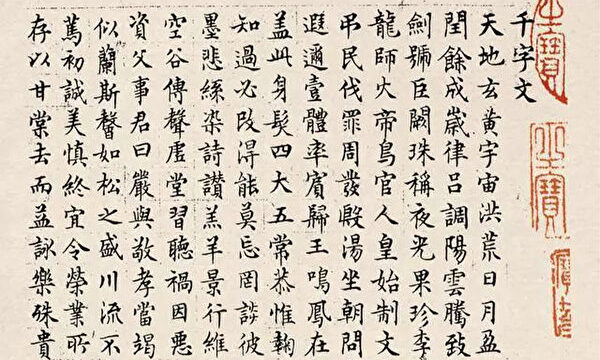 千字文
天地玄黃宇宙洪荒日月盈
閏餘成歲律呂調陽雲騰致
劍號巨闕珠稱夜光果珍李
龍師火帝鳥官人皇始制文
弔民伐罪周發殷湯坐朝問
遐邇壹體率賓歸王鳴鳳在
蓋此身髮四大五常恭惟鞠
知過必改得能莫忘罔談彼
墨悲絲染詩讚羔羊景行維
空谷傳聲虛堂習聽禍因惡
資父事君曰嚴與敬孝當竭
似蘭斯馨如松之盛川流不
篤初誠美慎終宜令榮業所
存以甘棠去而益詠樂殊貴